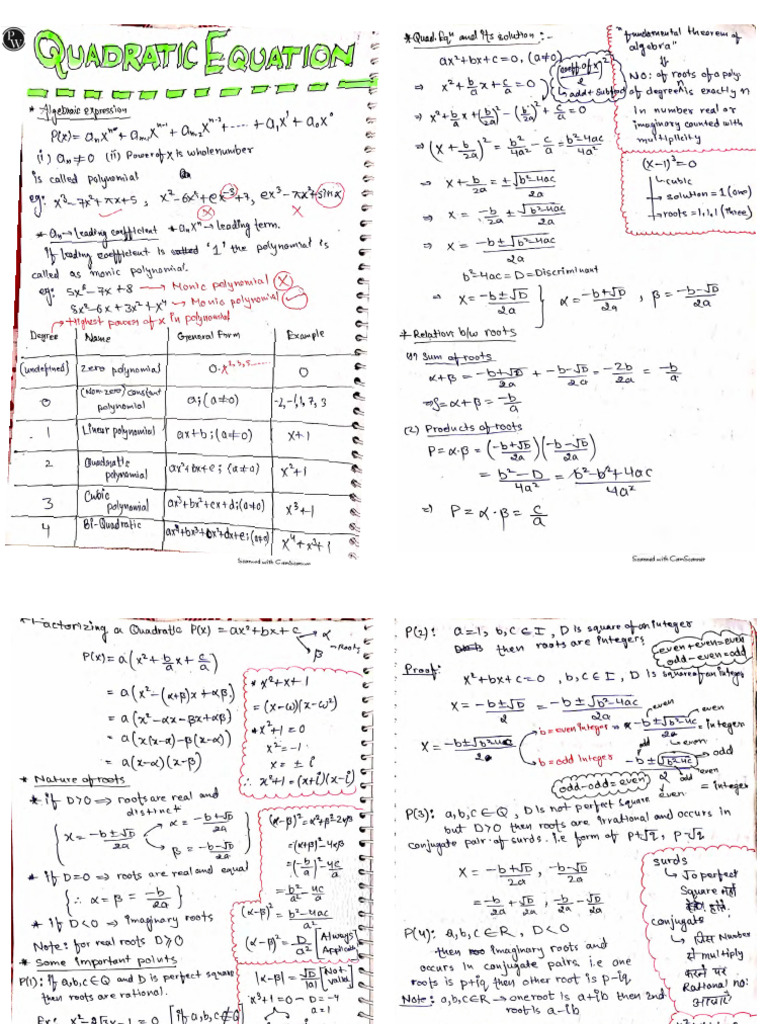 PW
QUADRATIC EQUATION
* Algebraic expression
P(x) = aₙxⁿ + aₙ₋₁xⁿ⁻¹ + aₙ₋₂xⁿ⁻² + ..... + a₁x¹ + a₀x⁰
(i) aₙ ≠ 0 (ii) Power of x is whole number
is called polynomial
eg: x³ - 7x² + πx + 5 , x² - 6x⁵ + ex⁻³ + 7, ex³ - πx² + sinx
* aₙ → leading coefficient * aₙxⁿ → leading term.
If leading coefficient is called '1' the polynomial is
called as monic polynomial.
eg: 5x⁸ - 7x + 8 → Monic polynomial
5x² - 6x + 3x² + x⁴ → Monic polynomial
→ Highest powers of x in polynomial
Degree Name General Form Example
(undefined) Zero polynomial 0·x¹,²,³...... 0
0 (Non-zero) constant polynomial a; (a≠0) -2,-1,1,7,3
1 Linear polynomial ax+b; (a≠0) x+1
2 Quadratic polynomial ax²+bx+c; (a≠0) x²+1
3 Cubic polynomial ax³+bx²+cx+d; (a≠0) x³+1
4 Bi-Quadratic ax⁴+bx³+cx²+dx+e; (a≠0) x⁴+x³+1
Scanned with CamScanner
* Quad. Eqⁿ and its solution :-
ax²+bx+c = 0, (a≠0)
⇒ x² + b/a x + c/a = 0
coeff of x
2
↳ add + subtract
⇒ x² + b/a x + (b/2a)² - (b/2a)² + c/a = 0
⇒ (x + b/2a)² = b²/4a² - c/a = b²-4ac/4a²
⇒ x + b/2a = ± √b²-4ac/2a
⇒ x = -b/2a ± √b²-4ac/2a
⇒ x = -b±√b²-4ac/2a
b²-4ac = D = Discriminant
⇒ x = -b±√D/2a } α = -b+√D/2a , β = -b-√D/2a
"fundamental theorem of
algebra"
⇓
No: of roots of a poly:
of degree n is exactly n
In number real or
imaginary counted with
multiplicity
(x-1)³ = 0
↳ cubic
→ solution = 1 (one)
→ roots = 1,1,1 (Three)
* Relation b/w roots
(1) Sum of roots
α+β = -b+√D/2a + -b-√D/2a = -2b/2a = -b/a
⇒ S = α+β = -b/a
(2) Products of roots
P = α·β = (-b+√D/2a)(-b-√D/2a)
= b²-D/4a² = b²-b²+4ac/4a²
⇒ P = α·β = c/a
Scanned with CamScanner
* Factorizing a Quadratic P(x) = ax²+bx+c
α
β
Roots
P(x) = a(x² + b/a x + c/a)
= a(x² - (α+β)x + αβ)
= a(x² - αx - βx + αβ)
= a(x(x-α) - β(x-α))
= a(x-α)(x-β)
* x²+x+1
= (x-ω)(x-ω²)
* x²+1 = 0
x² = -1
x = ± i
∴ x²+1 = (x+i)(x-i)
* Nature of roots
* if D>0 ⇒ roots are real and
distinct
{ x = -b±√D/2a
α = -b+√D/2a
β = -b-√D/2a }
* if D=0 ⇒ roots are real and equal
{ ∴ α = β = -b/2a }
* if D<0 ⇒ imaginary roots
Note: for real roots D≥0
(α-β)² = α²+β²-2αβ
= (α+β)²-4αβ
= (-b/a)² - 4c/a
= b²/a² - 4c/a
(α-β)² = b²-4ac/a²
(α-β)² = D/a² [Always Applicable
|α-β| = √D/|a| [Not valid
x³+1=0 → D=-4
a=1
* Some important points
P(1): if a,b,c∈Q and D is perfect square
then roots are rational.
if a,b,c∉Q
P(2): a=1, b,c∈I, D is square of an integer
then roots are integers
even+even=even
odd-even=odd
Proof: x²+bx+c=0 , b,c∈I, D is square of an integer
x = -b±√D/2 = -b±√b²-4ac/2a
x = -b±√b²-4c/2a
b = even integer
b = odd integer
even
even
-b±√b²-4c/2a = integer
even
odd
odd
-b±√b²-4c
even
even
= integer
odd-odd=even
P(3): a,b,c∈Q, D is not perfect square
but D>0 then roots are irrational and occurs in
conjugate pair of surds. i.e form of p+√q, p-√q
x = -b+√D/2a, -b-√D/2a
= -b/2a + √D/2a, -b/2a - √D/2a
surds
↳ √D perfect
Square नहीं
होते.
conjugate
↳ जिस Number
से multiply
करने पर
Rational no:
आजाये
P(4): a,b,c∈R, D<0
then imaginary roots and
occurs in conjugate pairs, i.e one
roots is p+iq, then other root is p-iq.
Note: a,b,c∈R → one root is a+ib then 2nd
root is a-ib